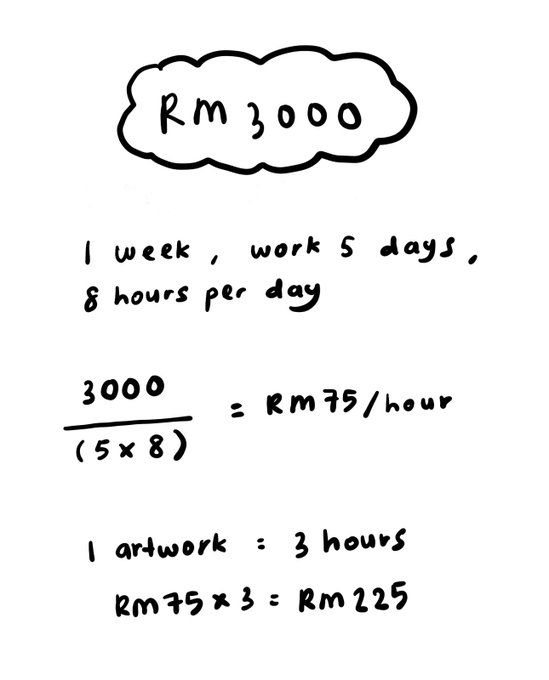 RM 3000
1 week, work 5 days,
8 hours per day
3000
(5 x 8)
= RM75/hour
1 artwork = 3 hours
RM75 x 3 = RM225